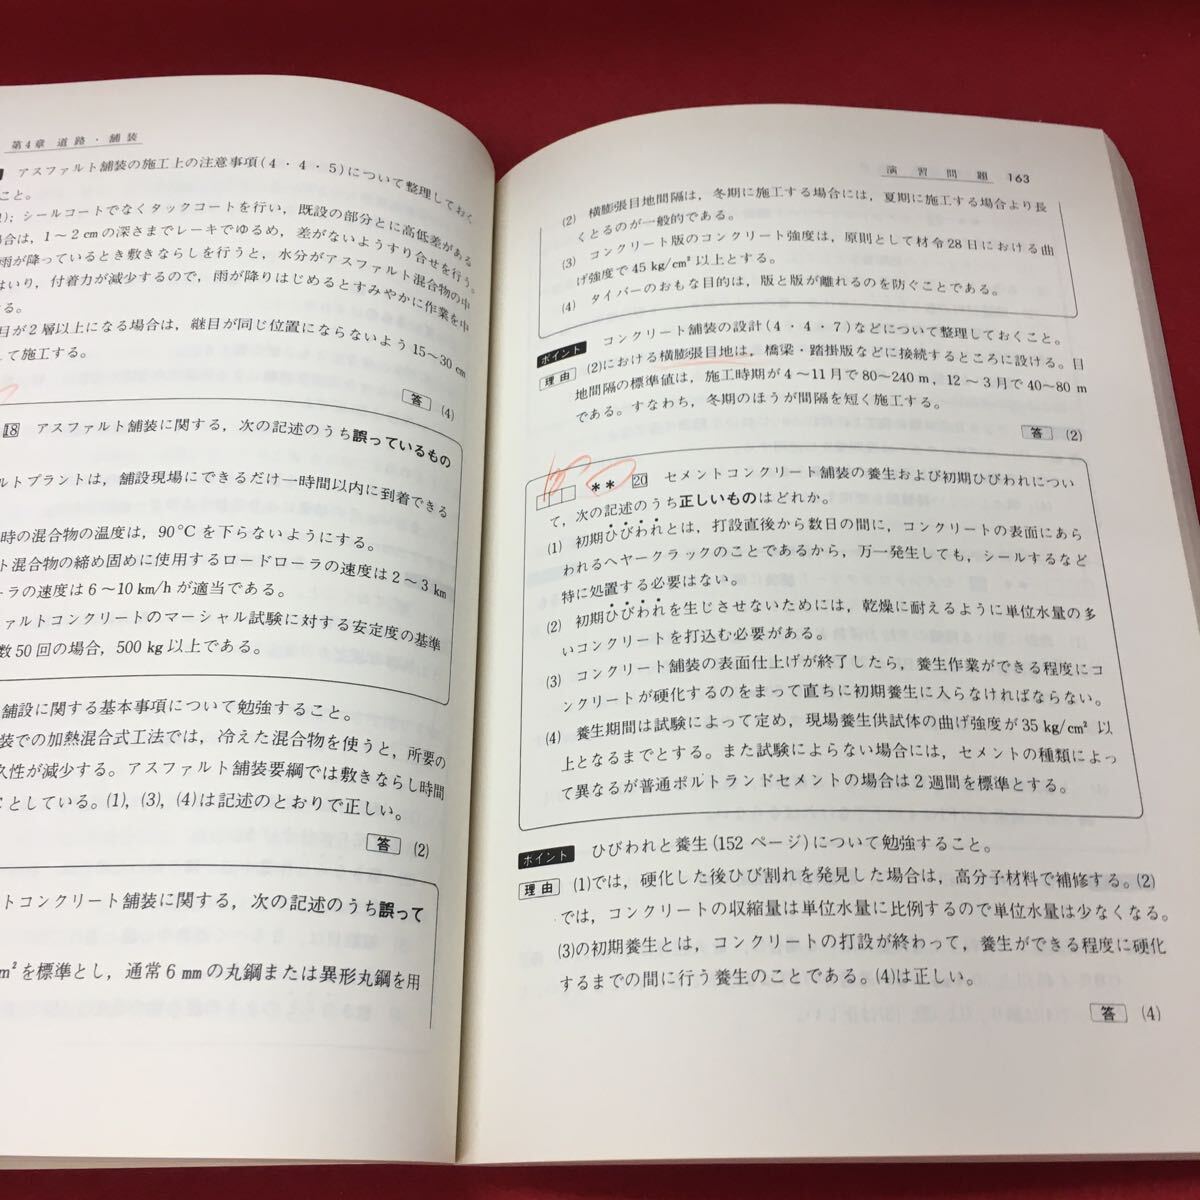 第4章 道路・舗装
アスファルト舗装の施工上の注意事項(4・4・5)について整理しておく
こと。
);シールコートでなくタックコートを行い,既設の部分とに高低差がある
場合は,1〜2cmの深さまでレーキでゆるめ,差がないようすり合せを行う。
雨が降っているとき敷きならしを行うと,水分がアスファルト混合物の中
はいり,付着力が減少するので,雨が降りはじめるとすみやかに作業を中
る。
目が2層以上になる場合は,継目が同じ位置にならないよう15〜30cm
て施工する。
答 (4)
18 アスファルト舗装に関する,次の記述のうち誤っているもの
ルトプラントは,舗設現場にできるだけ一時間以内に到着できる
時の混合物の温度は,90℃を下らないようにする。
ト混合物の締め固めに使用するロードローラの速度は2〜3km
ーラの速度は6〜10km/hが適当である。
ァルトコンクリートのマーシャル試験に対する安定度の基準
数50回の場合,500kg以上である。
舗設に関する基本事項について勉強すること。
装での加熱混合式工法では,冷えた混合物を使うと,所要の
久性が減少する。アスファルト舗装要綱では敷きならし時間
℃としている。(1),(3),(4)は記述のとおりで正しい。
答 (2)
トコンクリート舗装に関する,次の記述のうち誤って
m²を標準とし,通常6mmの丸鋼または異形丸鋼を用
演習問題 163
(2) 横膨張目地間隔は,冬期に施工する場合には,夏期に施工する場合より長
くとるのが一般的である。
(3) コンクリート版のコンクリート強度は,原則として材令28日における曲
げ強度で45kg/cm²以上とする。
(4) タイバーのおもな目的は,版と版が離れるのを防ぐことである。
ポイント コンクリート舗装の設計(4・4・7)などについて整理しておくこと。
理由 (2)における横膨張目地は,橋梁・踏掛版などに接続するところに設ける。目
地間隔の標準値は,施工時期が4〜11月で80〜240m,12〜3月で40〜80m
である。すなわち,冬期のほうが間隔を短く施工する。
答 (2)
** 20 セメントコンクリート舗装の養生および初期ひびわれについ
て,次の記述のうち正しいものはどれか。
(1) 初期ひびわれとは,打設直後から数日の間に,コンクリートの表面にあら
われるヘヤークラックのことであるから,万一発生しても,シールするなど
特に処置する必要はない。
(2) 初期ひびわれを生じさせないためには,乾燥に耐えるように単位水量の多
いコンクリートを打込む必要がある。
(3) コンクリート舗装の表面仕上げが終了したら,養生作業ができる程度にコ
ンクリートが硬化するのをまって直ちに初期養生に入らなければならない。
(4) 養生期間は試験によって定め,現場養生供試体の曲げ強度が35kg/cm²以
上となるまでとする。また試験によらない場合には,セメントの種類によっ
て異なるが普通ポルトランドセメントの場合は2週間を標準とする。
ポイント ひびわれと養生(152ページ)について勉強すること。
理由 (1)では,硬化した後ひび割れを発見した場合は,高分子材料で補修する。(2)
では,コンクリートの収縮量は単位水量に比例するので単位水量は少なくなる。
(3)の初期養生とは,コンクリートの打設が終わって,養生ができる程度に硬化
するまでの間に行う養生のことである。(4)は正しい。
答 (4)